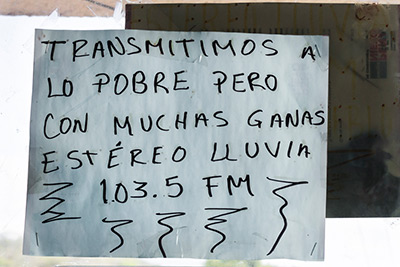 TRANSMITIMOS A
LO POBRE PERO
CON MUCHAS GANAS
ESTÉREO LLUVIA
103.5 FM